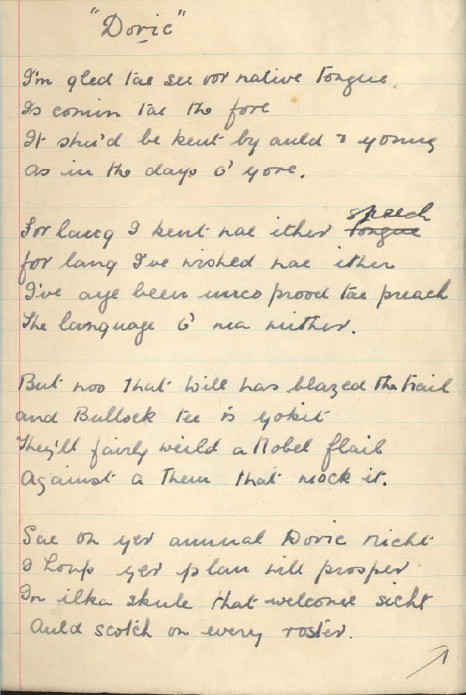 "Doric"
I'm gled tae see oor native tongue
Is comin tae the fore
It shu'd be kent by auld & young
as in the days o' yore.
For lang I kent nae ither speech tongue
for lang I've wished nae ither
I've aye been unco prood tae preach
The language o' ma mither.
But noo that Will has blazed the trail
and Bullock tee is yokit
They'll fairly weild a Nobel flail
Against a them that mock it.
Sae on yer annual Doric nicht
I houp yer plan will prosper
In ilka skule that welcome sicht
Auld scotch on every roster.